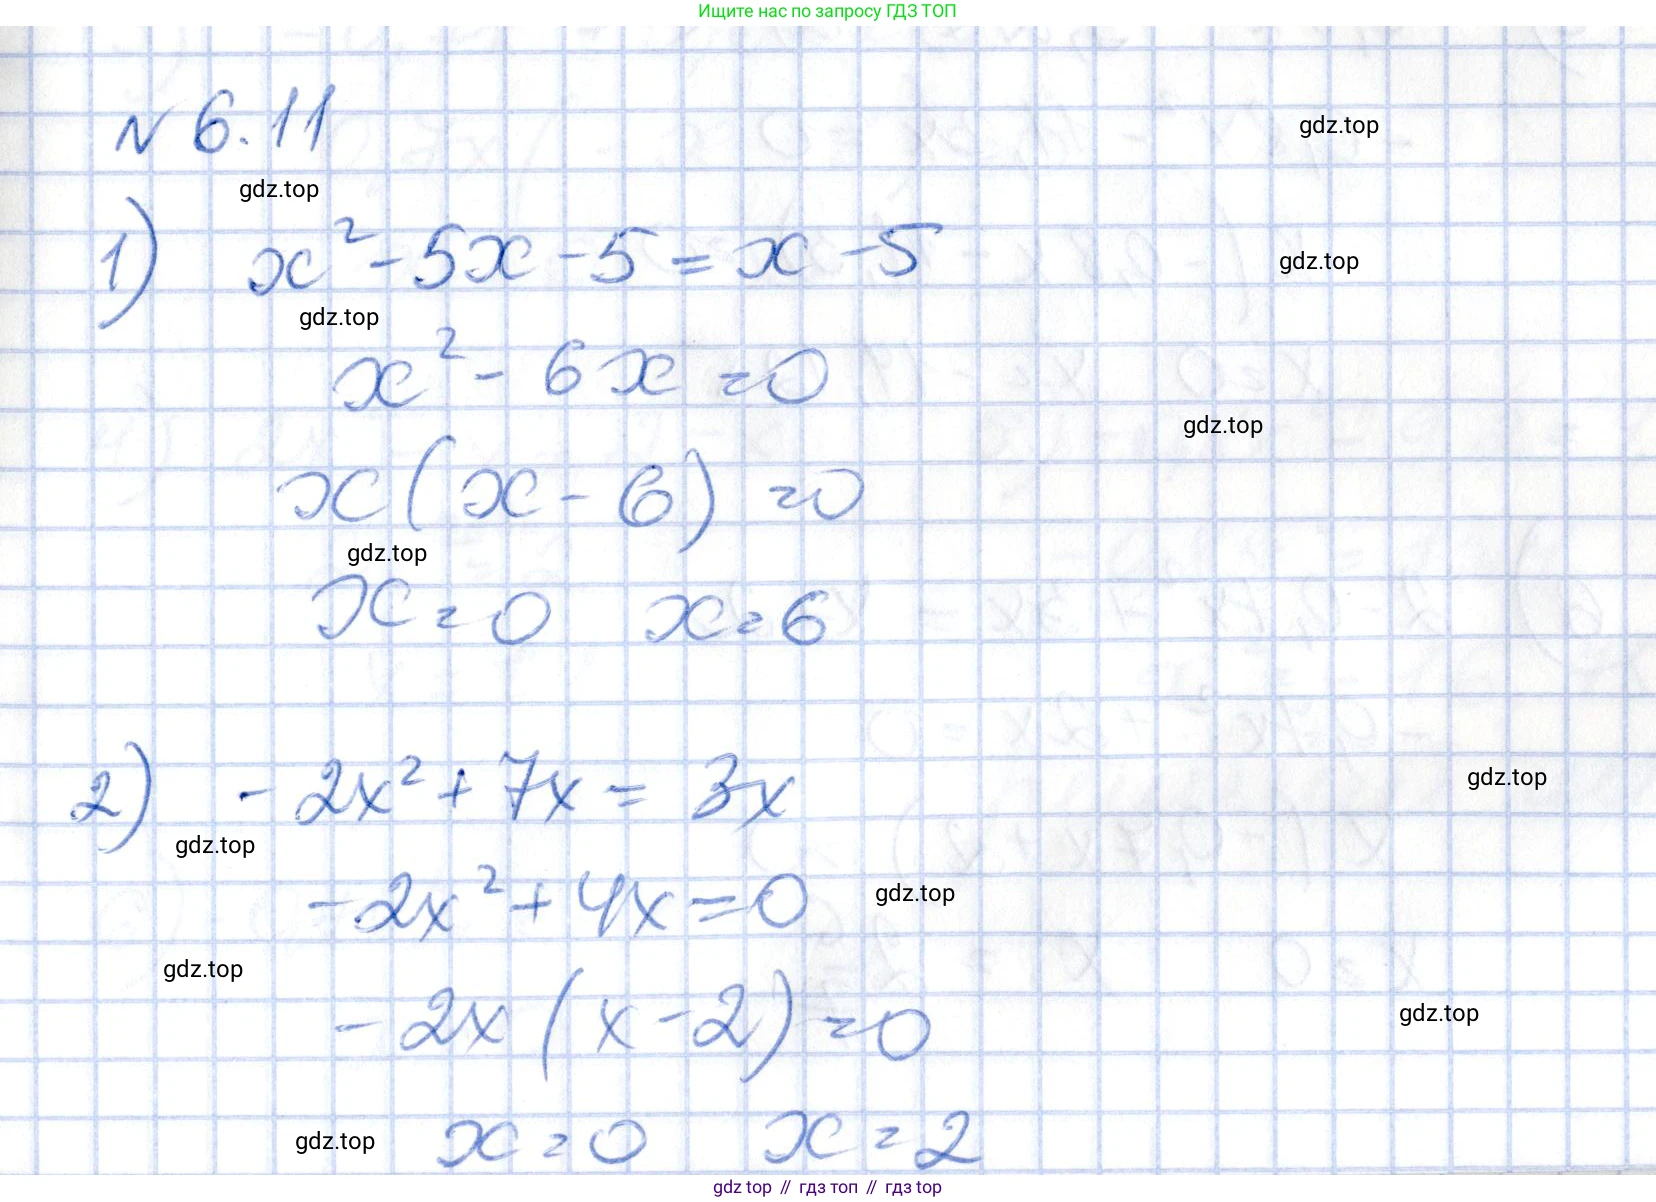 Ищите нас по запросу ГДЗ ТОП
№ 6.11
gdz.top
gdz.top
1) x² - 5x - 5 = x - 5
gdz.top
gdz.top
x² - 6x = 0
gdz.top
x(x - 6) = 0
gdz.top
x = 0 x = 6
2) - 2x² + 7x = 3x
gdz.top
gdz.top
- 2x² + 4x = 0
gdz.top
gdz.top
- 2x(x - 2) = 0
gdz.top
x = 0 x = 2
gdz.top
gdz top // гдз топ // гдз top